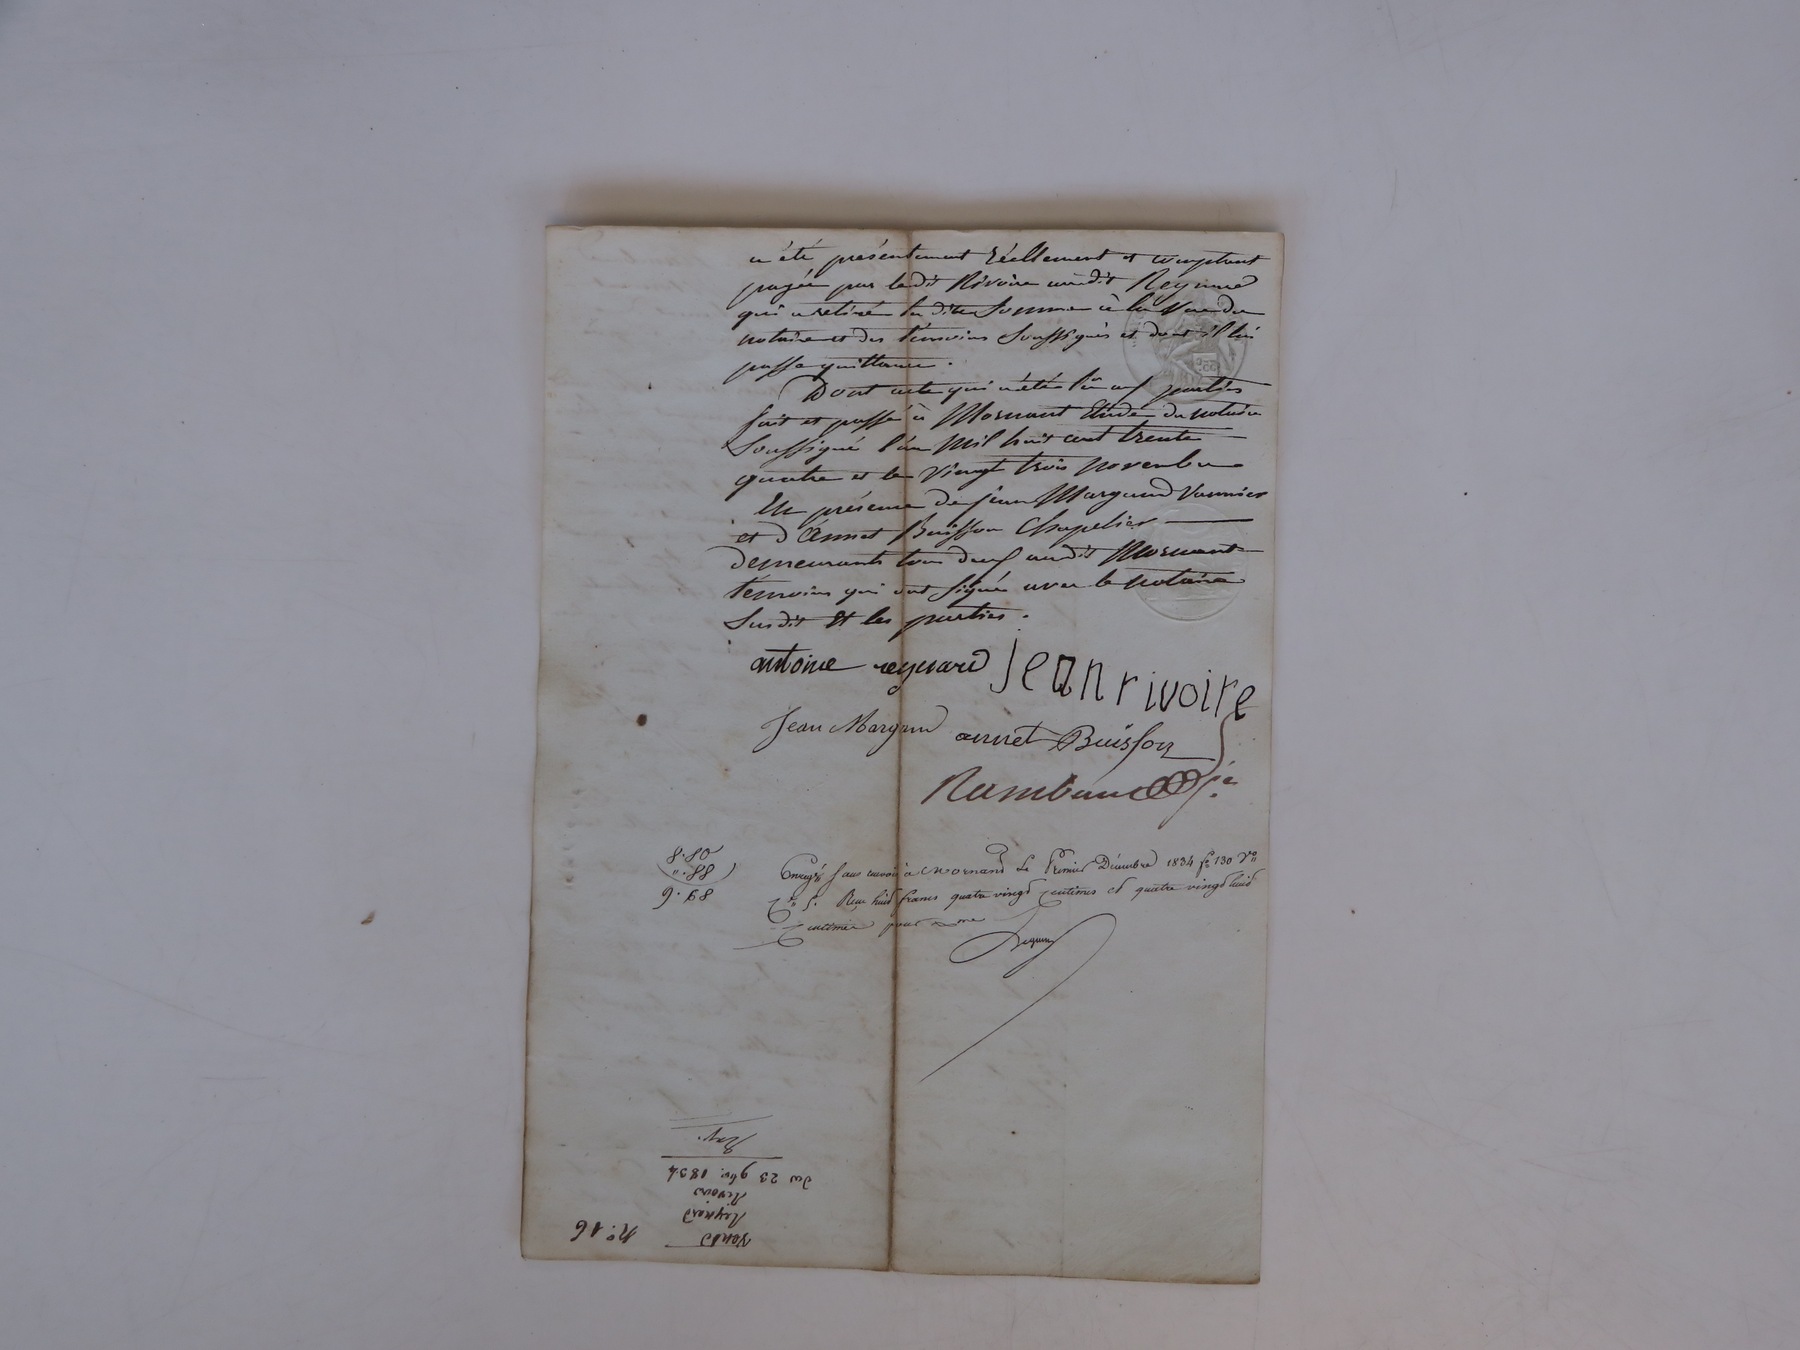 a été présentement réellement et comptant
payée par ledit Rivoire audit Reynard
qui a retiré la dite Somme à la Vue du
notaire et des témoins Soussignés et dont il lui
passe quittance.
Dont acte qui a été lu aux parties
fait et passé à Mornant Etude du notaire
Soussigné l'an Mil huit cent trente
quatre et le Vingt trois novembre
En présence de Jean Margand Vannier
et d'Annet Buisson Chapelier
demeurants tous deux audit Mornant
témoins qui ont Signé avec le notaire
Susdit Et les parties.
antoine reynard jean rivoire
Jean Margand annet Buisson
Rambaud
8.80
".88
9.68
Enregé Sans renvoi à Mornand Le Premier Décembre 1834 fo 130 Vo
Co 5. Reçu huit francs quatre vingt Centimes et quatre vingt huit
Centimes pour Dme
No. 16
Vente
Reynard
Rivoire
du 23 9bre 1834